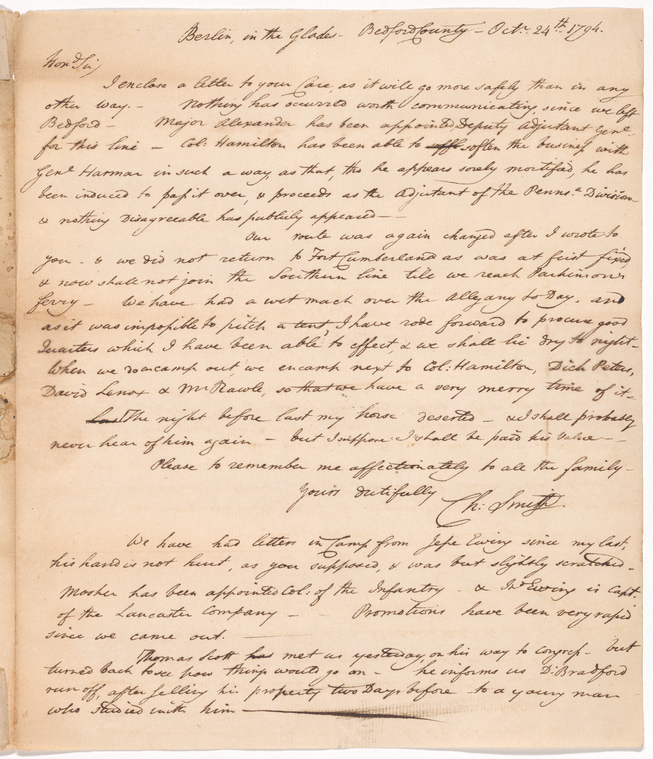 Berlin, in the Glades - Bedford County - Octr. 24th. 1794.
Hond Sir,
I enclose a letter to your Care, as it will go more safely than in any
other way. - Nothing has occurred worth communicating since we left
Bedford - Major Alexander has been appointed Deputy Adjutant Genl.
for this line - Col: Hamilton has been able to soften the business with
Genl Harmar in such a way as that, tho he appears sorely mortified, he has
been induced to pass it over, & proceeds as the Adjutant of the Pennsa. Division
& nothing Disagreeable has publicly appeared -
Our route was again changed after I wrote to
you - & we did not return to Fort Cumberland as was at first fixed,
& now shall not join the Southern line till we reach Parkinson's
ferry - We have had a wet mach over the Allegany to Day, and
as it was impossible to pitch a tent, I have rode forward to procure good
Quarters which I have been able to effect, & we shall lie dry to night -
When we do encamp out we encamp next to Col: Hamilton, Dick Peters,
David Lenox & Mr Rawle, so that we have a very merry time of it -
The night before last my horse deserted - & I shall probably
never hear of him again - but I suppose I shall be paid his value -
Please to remember me affectionately to all the family -
Yours dutifully
Ch: Smith.
We have had letters in Camp from Jesse Ewing since my last,
his hand is not hurt, as you supposed, & was but slightly scratched -
Mosher has been appointed Col: of the Infantry - & Jn Ewing is Capt.
of the Lancaster Company - - Promotions have been very rapid
since we came out. -
Thomas Scott has met us yesterday, on his way to congress - but
turned back to see how things would go on - he informs us D: Bradford
run off, after selling his property two Days before to a young man
who studied with him -